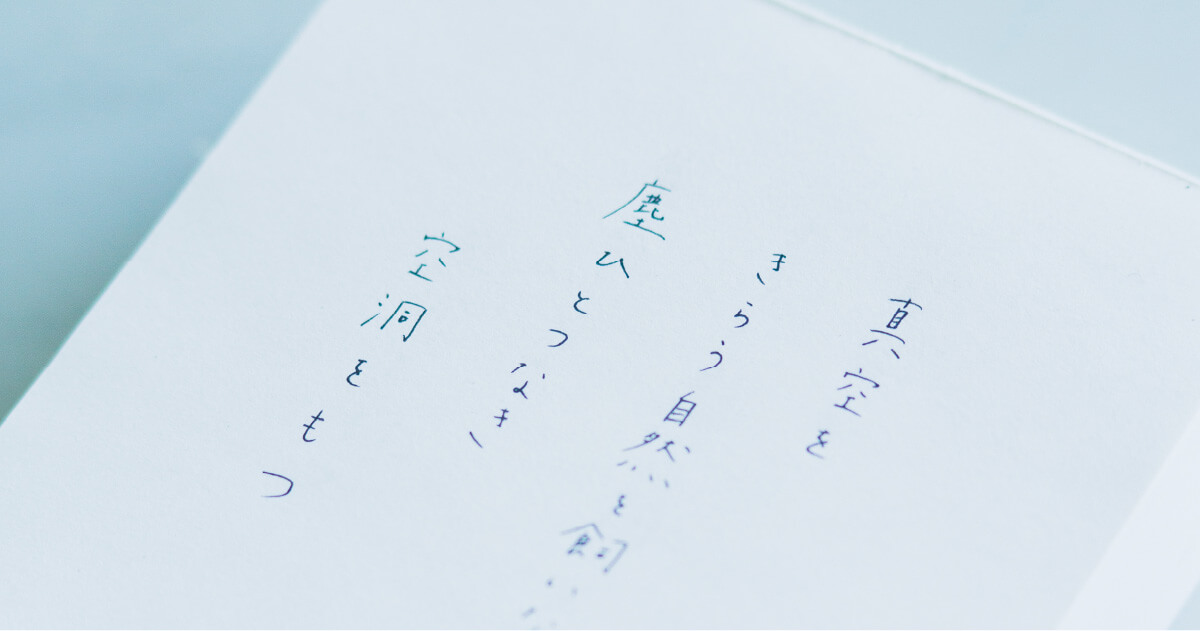 真空を
きらう自然を飼い
塵ひとつなき
空洞をもつ